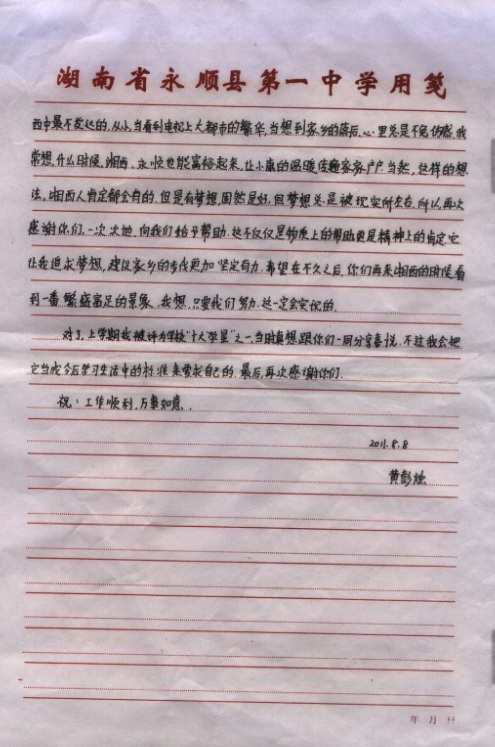 湖南省永顺县第一中学用笺
西中最不发达的,从小,当看到电视上大都市的繁华,当想到家乡的落后,心里总是不免伤感,我
常想,什么时候,湘西、永顺也能富裕起来,让小康的温暖住进家家户户,当然,这样的想
法,湘西人肯定都会有的,但是有梦想,固然是好,但梦想总是被现实所左右,所以,再次
感谢你们,一次次地,向我们给予帮助,这不仅仅是物质上的帮助更是精神上的肯定,它
让我追求梦想,建设家乡的步伐更加坚定有力,希望在不久之后,你们再来湘西的时候,看
到一番繁盛富足的景象,我想,只要我们努力,这一定会实现的.
对了,上学期我被评为学校“十大学星”之一,当时真想跟你们一同分享喜悦,不过我会把
它当成今后学习生活中的标准来要求自己的,最后,再次感谢你们.
祝:工作顺利,万事如意.
2011.8.8
黄彭
年 月 日